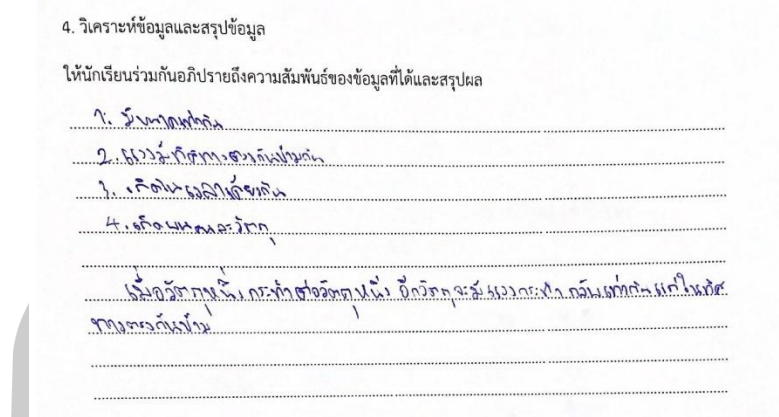 4. วิเคราะห์ข้อมูลและสรุปข้อมูล
ให้นักเรียนร่วมกันอภิปรายถึงความสัมพันธ์ของข้อมูลที่ได้และสรุปผล
1. มีขนาดเท่ากัน
2. แรงมีทิศทางตรงกันข้ามกัน
3. เกิดในเวลาเดียวกัน
4. เกิดบนคนละวัตถุ
เมื่อวัตถุหนึ่งกระทำต่อวัตถุหนึ่ง อีกวัตถุจะมีแรงกระทำ กลับเท่ากันแต่ในทิศ
ทางตรงกันข้าม